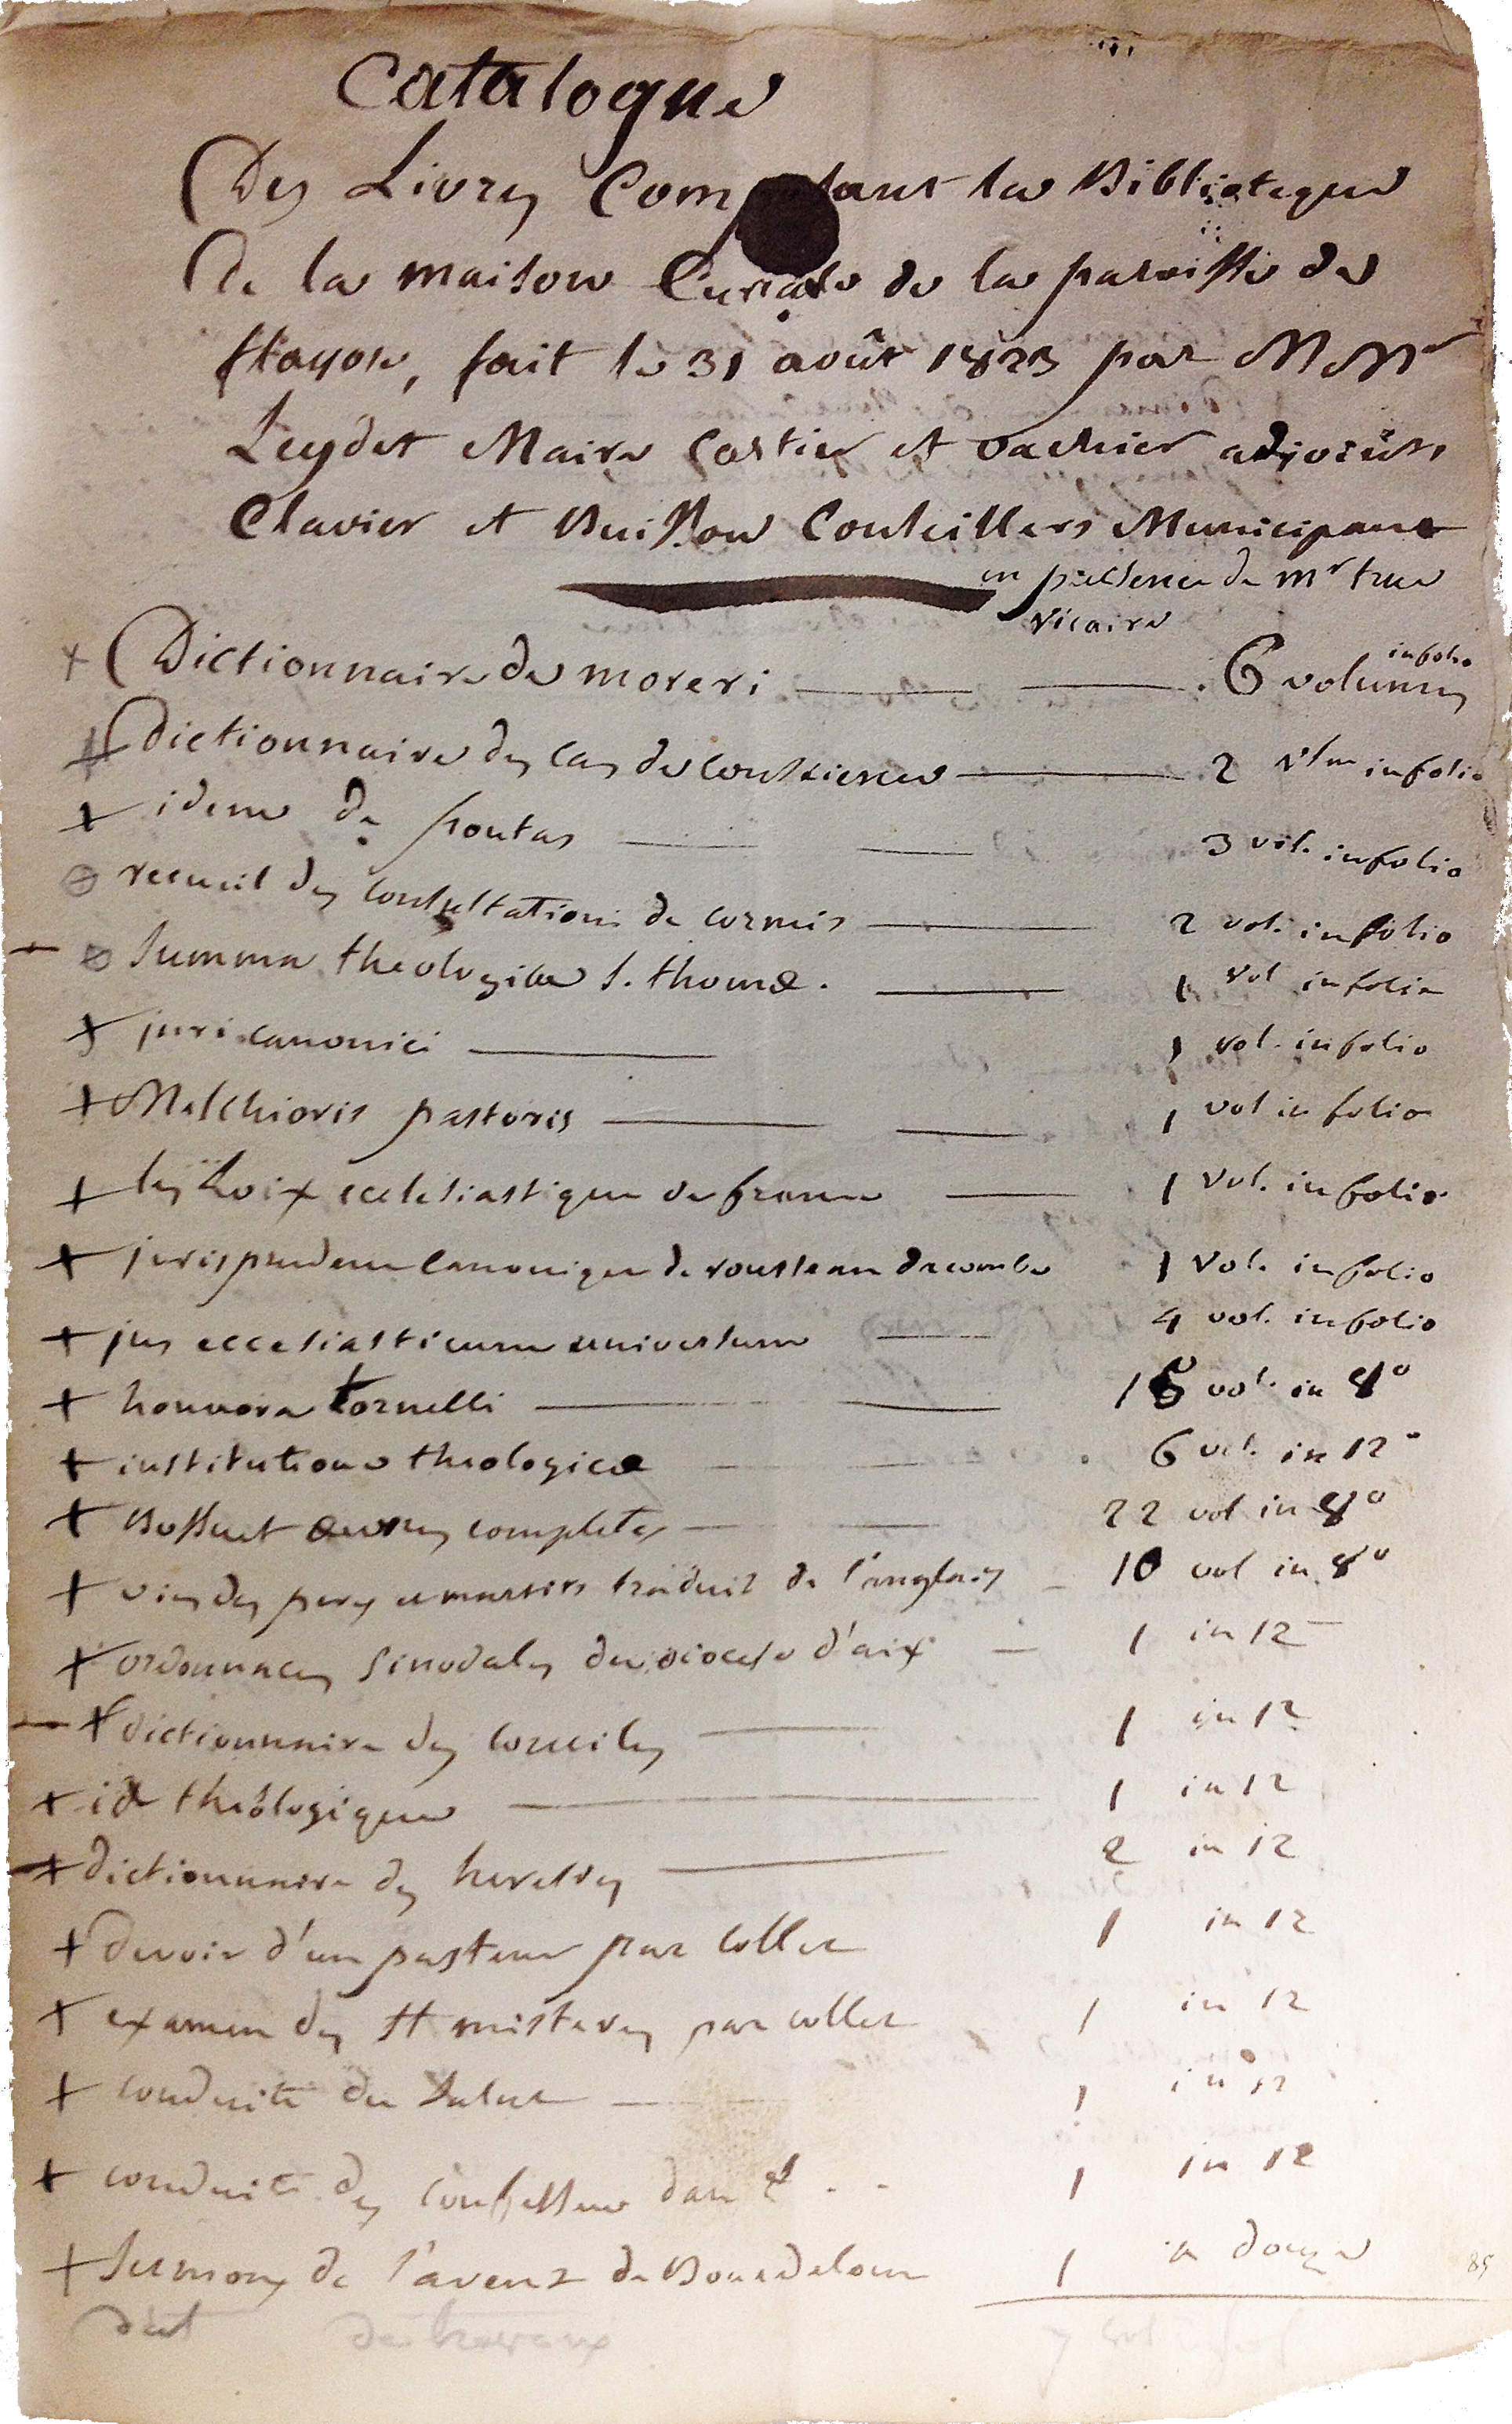 Catalogue
Des Livres Composant la Biblioteque
De la maison Curiale de la paroisse de
flayosc, fait le 31 août 1823 par MMrs
Leydet Maire Castier et vachier adjoints,
Clavier et Buisson Conseillers Municipaux
en présence de mr truc
vicaire
+ Dictionnaire de moreri 6 volumes infolio
+ Dictionnaire des Cas de Conscience 2 vlm infolio
+ idem de pontas 3 vol. infolio
recueil des Consultations de cormis 2 vol. infolio
Summa theologica S. thomæ. 1 vol infolio
+ juri canonici 1 vol. infolio
+ Melchioris pastoris 1 vol in folio
+ les Loix ecclesiastique de france 1 vol. infolio
+ jurisprudence Canonique de rousseau dacombe 1 vol. infolio
+ jus eccesiasticum universum 4 vol. infolio
+ honnora tornelli 16 vol. in 8°
+ institutiones theologicæ 6 vol. in 12°
+ Bossuet œuvres completes 22 vol in 8°
+ vies des peres et martirs traduit de l'anglais 10 vol in 8°
+ ordonnaces sinodales du diocese d'aix 1 in 12
+ dictionnaire des Conciles 1 in 12
+ id theologique 1 in 12
+ dictionnaire des heresies 2 in 12
+ devoir d'un pasteur par Collet 1 in 12
+ examen des SS misteres par collet 1 in 12
+ conduite du salut 1 in 12
+ conduite des Confesseurs dans l 1 in 12
+ Sermons de l'avent de Bourdaloue 1 in douze 85